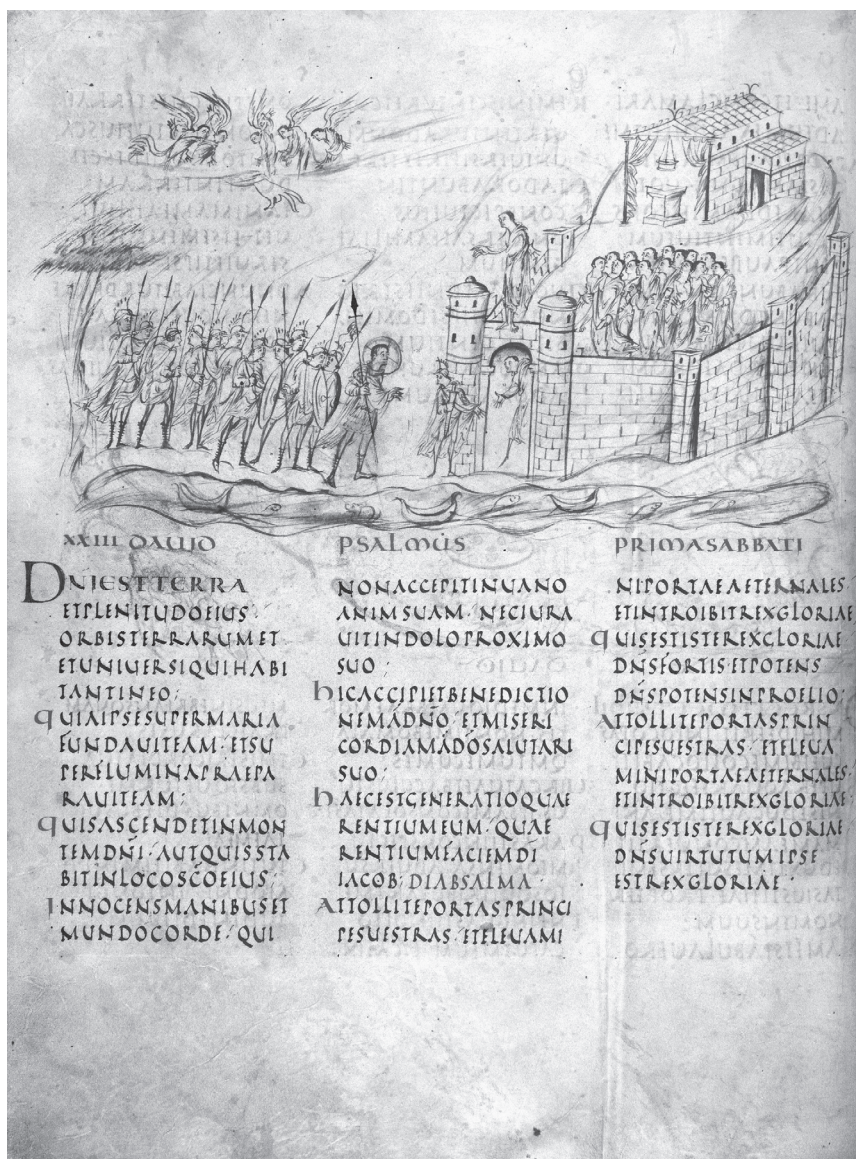 XXIII DAUID PSALMUS PRIMASABBATI
DNIESTTERRA
ETPLENITUDOEIUS·
ORBISTERRARUMET
ETUNIUERSIQUIHABI
TANTINEO;
QUIAIPSESUPERMARIA
FUNDAUITEAM·ETSU
PERFLUMINAPRAEPA
RAUITEAM;
QUISASCENDETINMON
TEMDNI·AUTQUISSTA
BITINLOCOSCOEIUS;
INNOCENSMANIBUSET
MUNDOCORDE·QUI
NONACCEPITINUANO
ANIMSUAM·NECIURA
UITINDOLOPROXIMO
SUO;
HICACCIPIETBENEDICTIO
NEMADNO·ETMISERI
CORDIAMADOSALUTARI
SUO;
HAECESTGENERATIOQUAE
RENTIUMEUM·QUAE
RENTIUMFACIEMDI
IACOB·DIABSALMA·
ATTOLLITEPORTASPRINCI
PESUESTRAS·ETELEUAMI
NIPORTAEAETERNALES
ETINTROIBITREXGLORIAE
QUISESTISTEREXGLORIAE
DNSFORTISETPOTENS
DNSPOTENSINPROELIO;
ATTOLLITEPORTASPRIN
CIPESUESTRAS·ETELEUA
MINIPORTAEAETERNALES·
ETINTROIBITREXGLORIAE
QUISESTISTEREXGLORIAE
DNSUIRTUTUMIPSE
ESTREXGLORIAE·